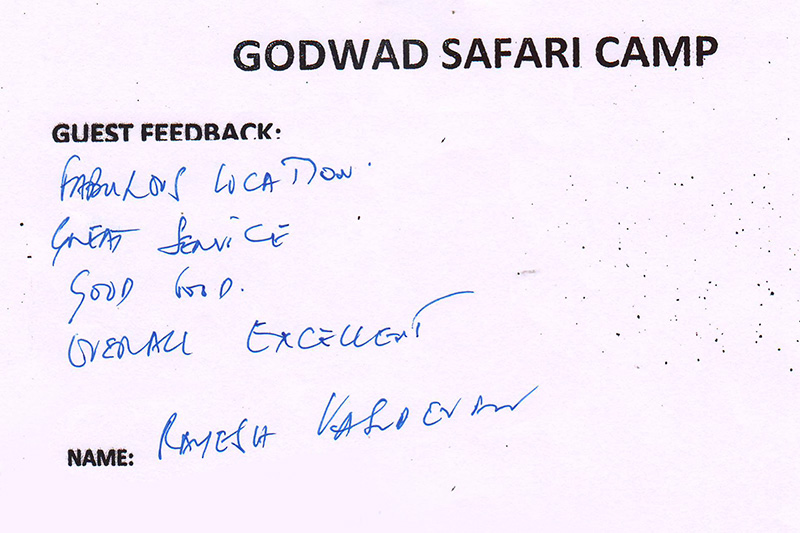 GODWAD SAFARI CAMP
GUEST FEEDBACK:
FABULOUS LOCATION.
GREAT SERVICE
GOOD FOOD.
OVERALL EXCELLENT
NAME: RAMESH VASUDEVAN